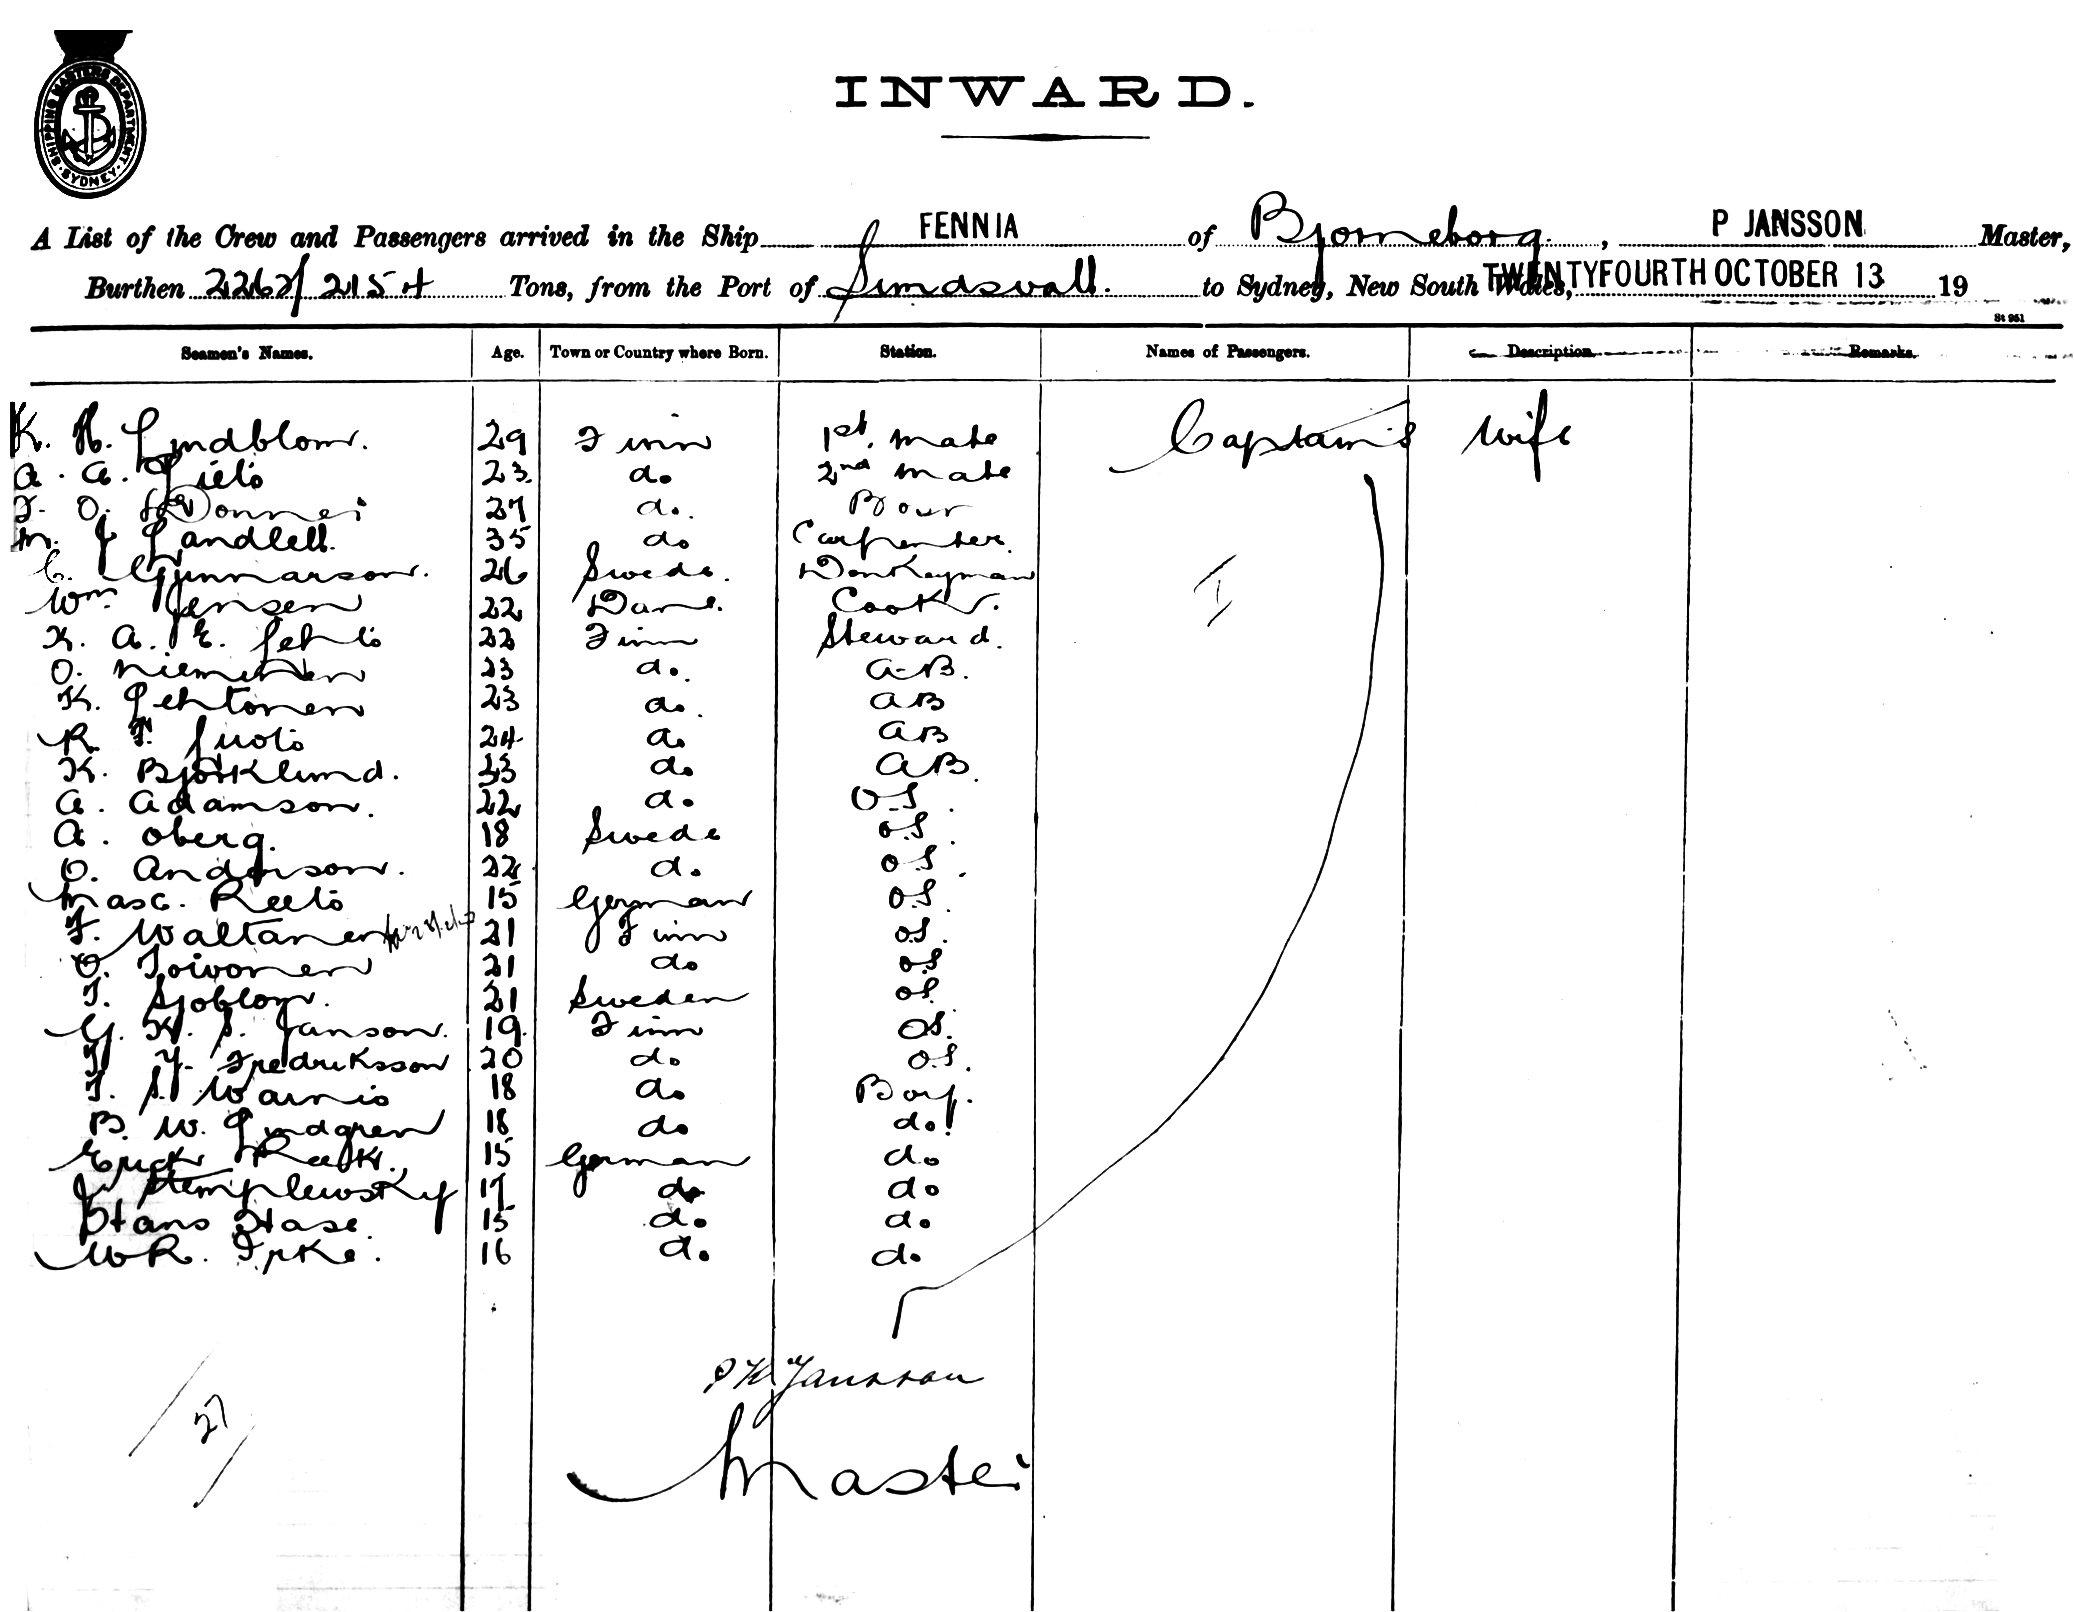 SHIPPING MASTERS DEPARTMENT. SYDNEY
INWARD.
A List of the Crew and Passengers arrived in the Ship FENNIA of Bjorneborg, P JANSSON Master,
Burthen 2262/2154 Tons, from the Port of Sundsvall. to Sydney, New South Wales, TWENTYFOURTH OCTOBER 13 19
St 951
Seamen's Names. Age. Town or Country where Born. Station. Names of Passengers. Description. Remarks.
K. H. Lindblom. 29 Finn 1st. mate Captain's Wife
A. A. Lieto 23. do 2nd mate
F. O. 27 do.
M. J Landlell. 35 do Carpenter.
C. Gunnarson. 26 Swede. Donkeyman
Wm Jensen 22 Dane. Cook.
K. A. E. Lehto 22 Finn Steward. I
O. Nieminen 23 do. A-B.
K. Lehtonen 23 do. AB
R. F. Juoti 24 do AB
K. Bjorklund. 33 do AB.
A. Adamson. 22 do O.S.
A. Oberg. 18 Swede O.S.
O. Anderson. 22 do. O.S.
Masc. Reeto 15 German O.S.
F. Waltanen 21 Finn O.S.
O. Toivonen 21 do O.S
T. Sjoblom. 21 Sweden O.S.
G. K. S. Janson. 19. Finn O.S.
J. Y. Fredriksson 20 do O.S.
T. S. Warnio 18 do Boy.
B. W. Lindgren 18 do do.
Erick 15 German do
J Stemplewsky 17 do do
Hans Hase. 15 do. do.
WR. Ipke. 16 do. do
P H Jansson
27
Master